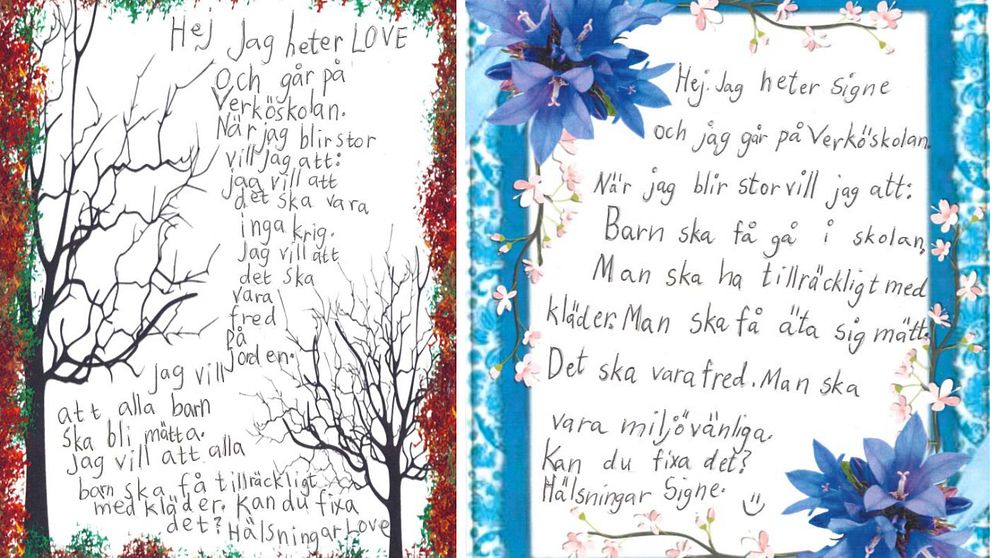 Hej Jag heter LOVE
Och går på
Verköskolan.
När jag blir stor
vill jag att:
jag vill att
det ska vara
inga krig.
Jag vill att
det ska
vara
fred
på
jorden.
Jag vill
att alla barn
ska bli mätta.
Jag vill att alla
barn ska få tillräckligt
med kläder. Kan du fixa
det? Hälsningar LOVE
Hej. Jag heter Signe
och jag går på Verköskolan.
När jag blir stor vill jag att:
Barn ska få gå i skolan,
Man ska ha tillräckligt med
kläder. Man ska få äta sig mätt.
Det ska vara fred. Man ska
vara miljövänliga.
Kan du fixa det?
Hälsningar Signe.